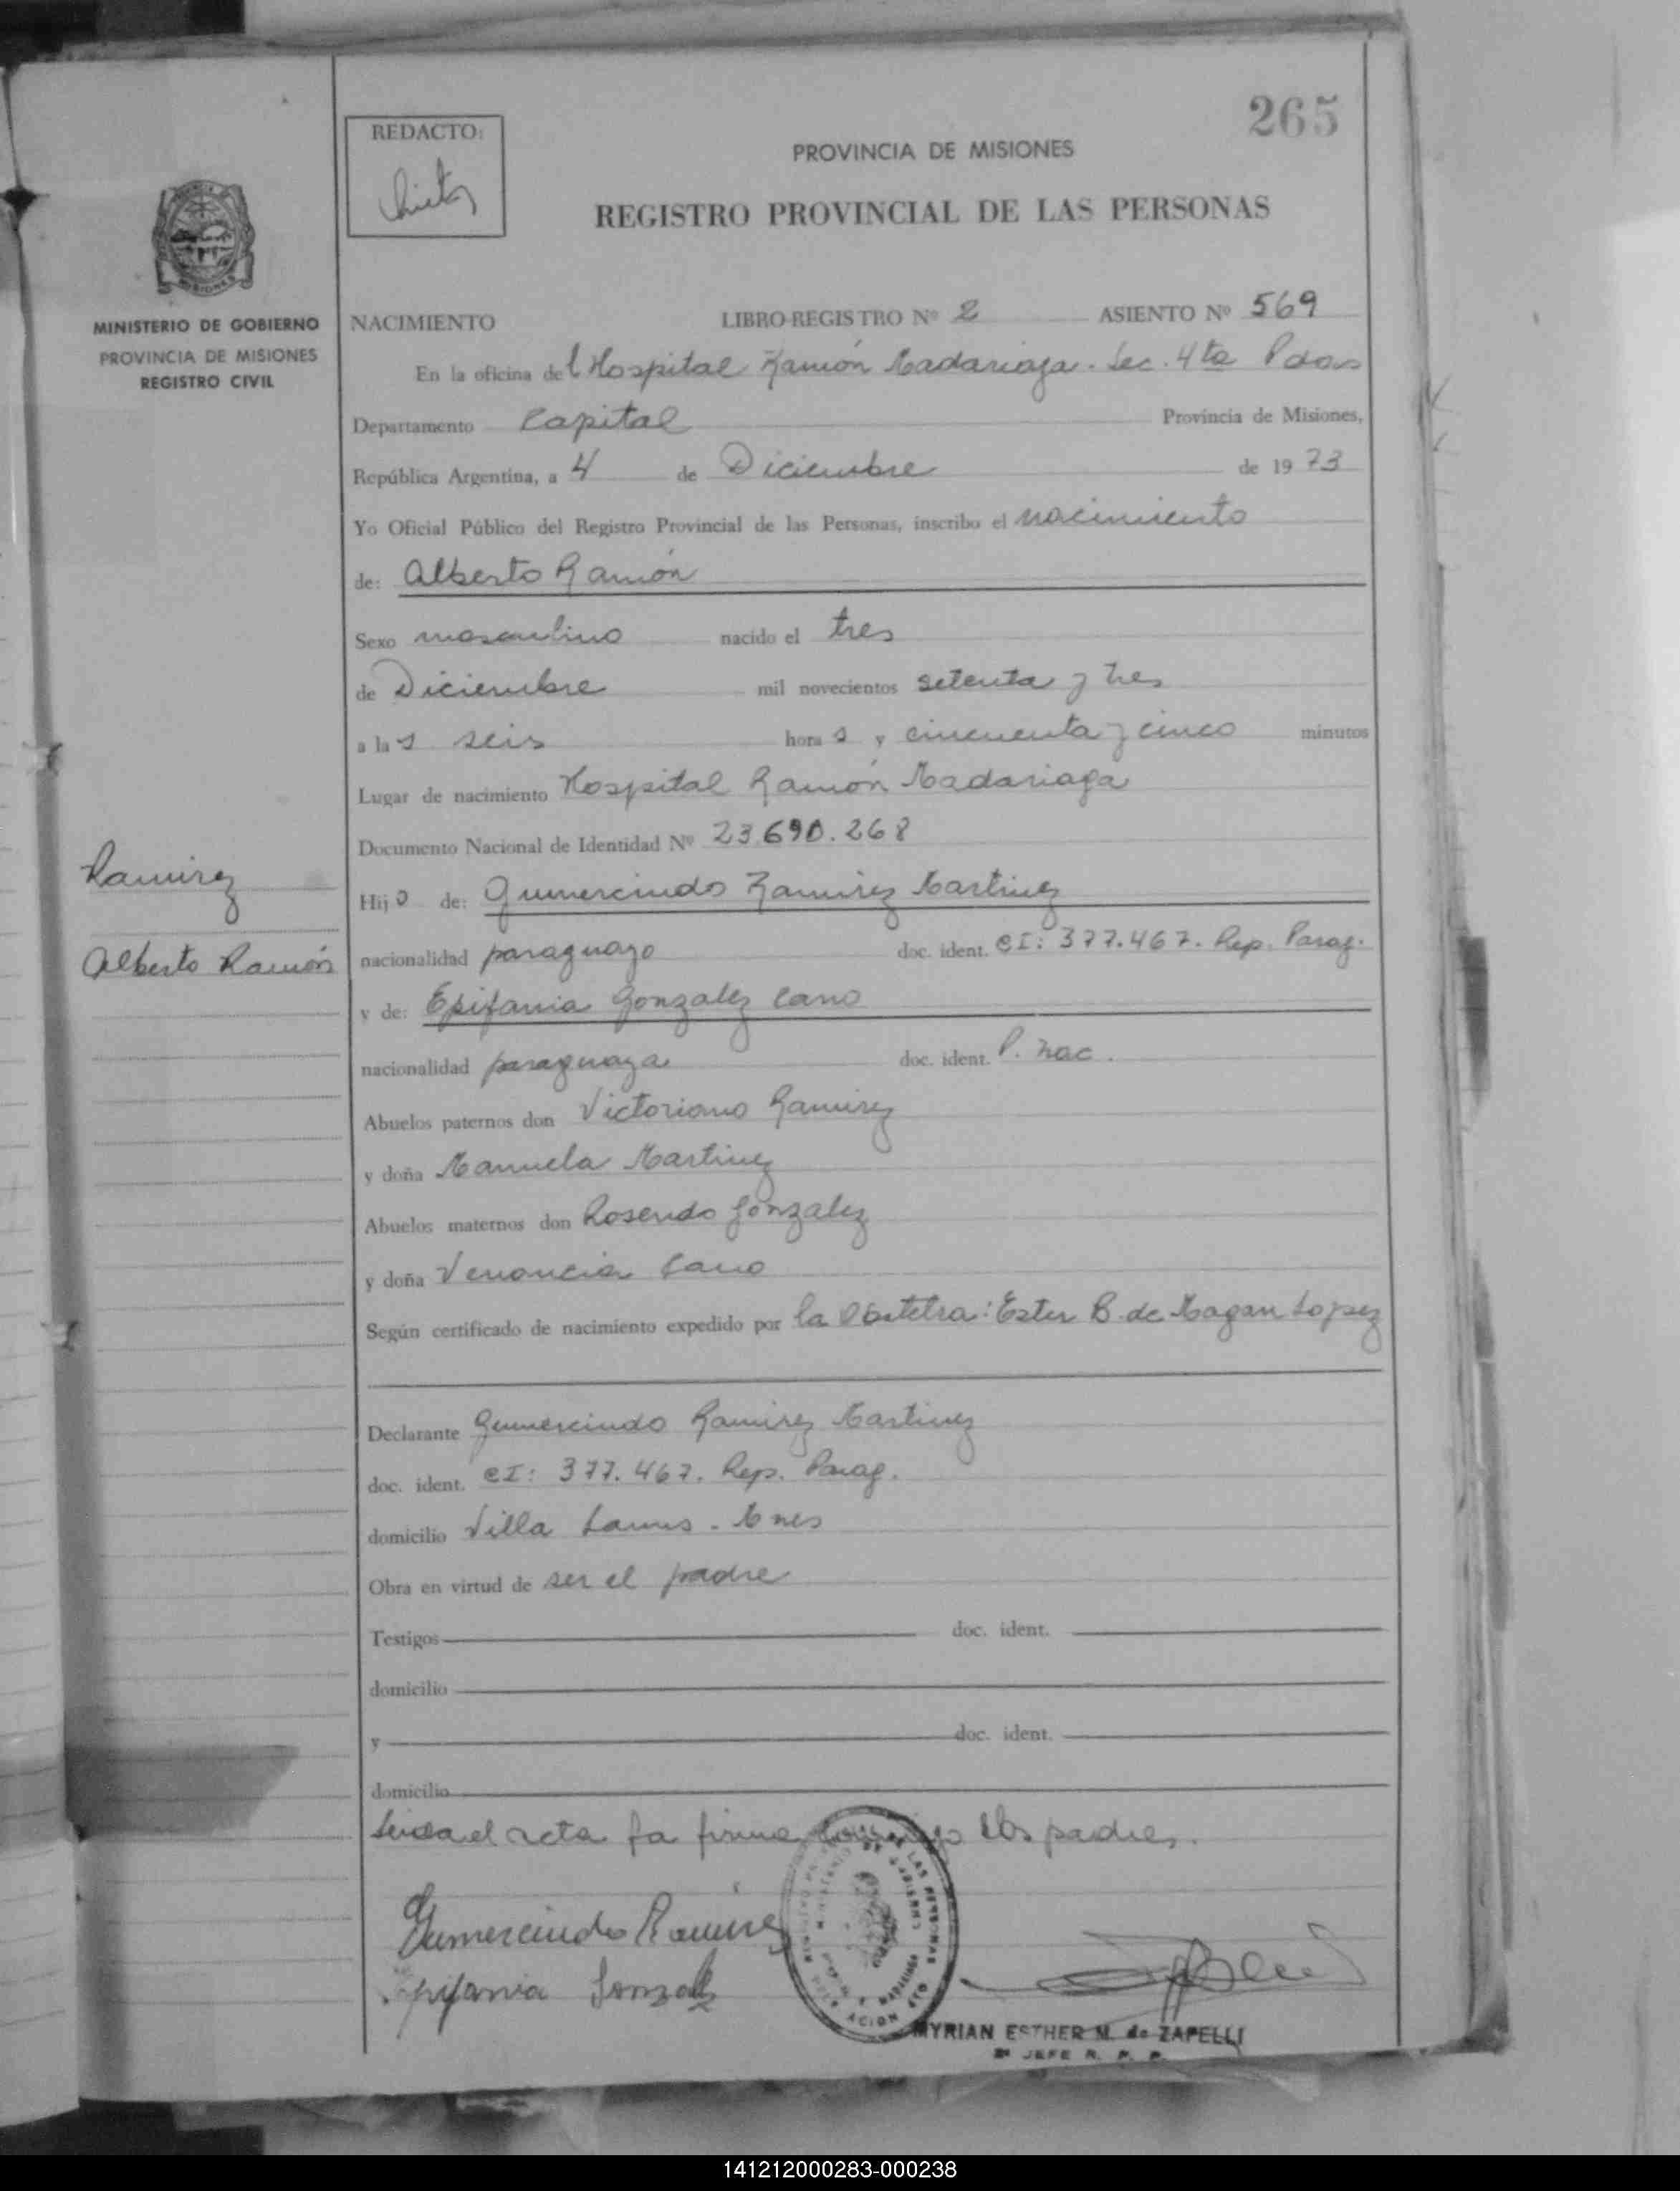 265
REDACTO:
PROVINCIA DE MISIONES
REGISTRO PROVINCIAL DE LAS PERSONAS
MINISTERIO DE GOBIERNO
PROVINCIA DE MISIONES
REGISTRO CIVIL
NACIMIENTO LIBRO-REGISTRO Nº 2 ASIENTO Nº 569
En la oficina del Hospital Ramón Madariaga. Sec. 4ta Pdas
Departamento Capital Provincia de Misiones,
República Argentina, a 4 de Diciembre de 1973
Yo Oficial Público del Registro Provincial de las Personas, inscribo el nacimiento
de: Alberto Ramón
Sexo masculino nacido el tres
de Diciembre mil novecientos setenta y tres
a las seis horas y cincuenta y cinco minutos
Lugar de nacimiento Hospital Ramón Madariaga
Documento Nacional de Identidad Nº 23.690.268
Ramirez
Alberto Ramón
Hijo de: Gumercindo Ramirez Martinez
nacionalidad paraguayo doc. ident. CI: 377.467. Rep. Parag.
y de: Epifania Gonzalez Cano
nacionalidad paraguaya doc. ident. P. nac.
Abuelos paternos don Victoriano Ramirez
y doña Manuela Martinez
Abuelos maternos don Rosendo Gonzalez
y doña Venancia Cano
Según certificado de nacimiento expedido por la Obstetra: Ester B. de Magan Lopez
Declarante Gumercindo Ramirez Martinez
doc. ident. CI: 377.467. Rep. Parag.
domicilio Villa Lanus - Mnes
Obra en virtud de ser el padre
Testigos doc. ident.
domicilio
y doc. ident.
domicilio
Leida el acta la firman conmigo los padres.
Gumercindo Ramirez
Epifania Gonzalez
MYRIAN ESTHER M. de ZAPELLI
2º JEFE R. P. P.
141212000283-000238